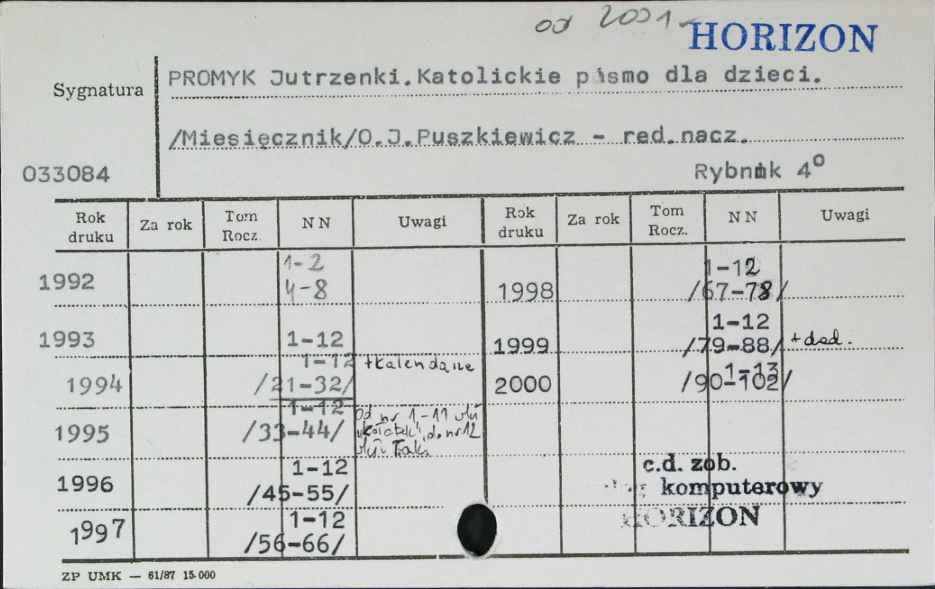 od 2001-
HORIZON
Sygnatura
PROMYK Jutrzenki.Katolickie pismo dla dzieci.
/Miesięcznik/O.J.Puszkiewicz - red.nacz.
033084
Rybnik 4°
Rok druku Za rok Tom Rocz. N N Uwagi Rok druku Za rok Tom Rocz. N N Uwagi
1992 1-2 4-8
1998 1-12 /67-78/
1993 1-12
1999 1-12 /79-88/ + dod.
1994 1-12 /21-32/ + kalendarze
2000 1-13 /90-102/
1995 1-12 /33-44/ od nr 1-11 do nr 12
1996 1-12 /45-55/
c.d. zob.
komputerowy
HORIZON
1997 1-12 /56-66/
ZP UMK — 61/87 15.000